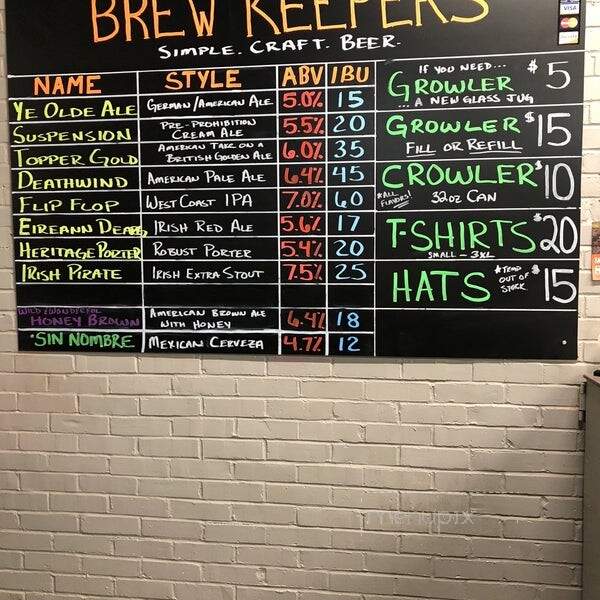 BREW KEEPERS
SIMPLE. CRAFT. BEER.
VISA
NAME STYLE ABV IBU
YE OLDE ALE GERMAN/AMERICAN ALE 5.0% 15
SUSPENSION PRE-PROHIBITION
CREAM ALE 5.5% 20
TOPPER GOLD AMERICAN TAKE ON A
BRITISH GOLDEN ALE 6.0% 35
DEATHWIND AMERICAN PALE ALE 6.4% 45
FLIP FLOP WEST COAST IPA 7.0% 60
EIREANN IRISH RED ALE 5.6% 17
HERITAGE PORTER ROBUST PORTER 5.4% 20
IRISH PIRATE IRISH EXTRA STOUT 7.5% 25
WILD & WONDERFUL
HONEY BROWN AMERICAN BROWN ALE
WITH HONEY 6.4% 18
*SIN NOMBRE MEXICAN CERVEZA 4.7% 12
IF YOU NEED...
GROWLER $5
...A NEW GLASS JUG
GROWLER $15
FILL OR REFILL
CROWLER $10
*ALL FLAVORS! 32oz CAN
T-SHIRTS $20
SMALL - 3XL
HATS *TEMP
OUT OF
STOCK $15
menupix